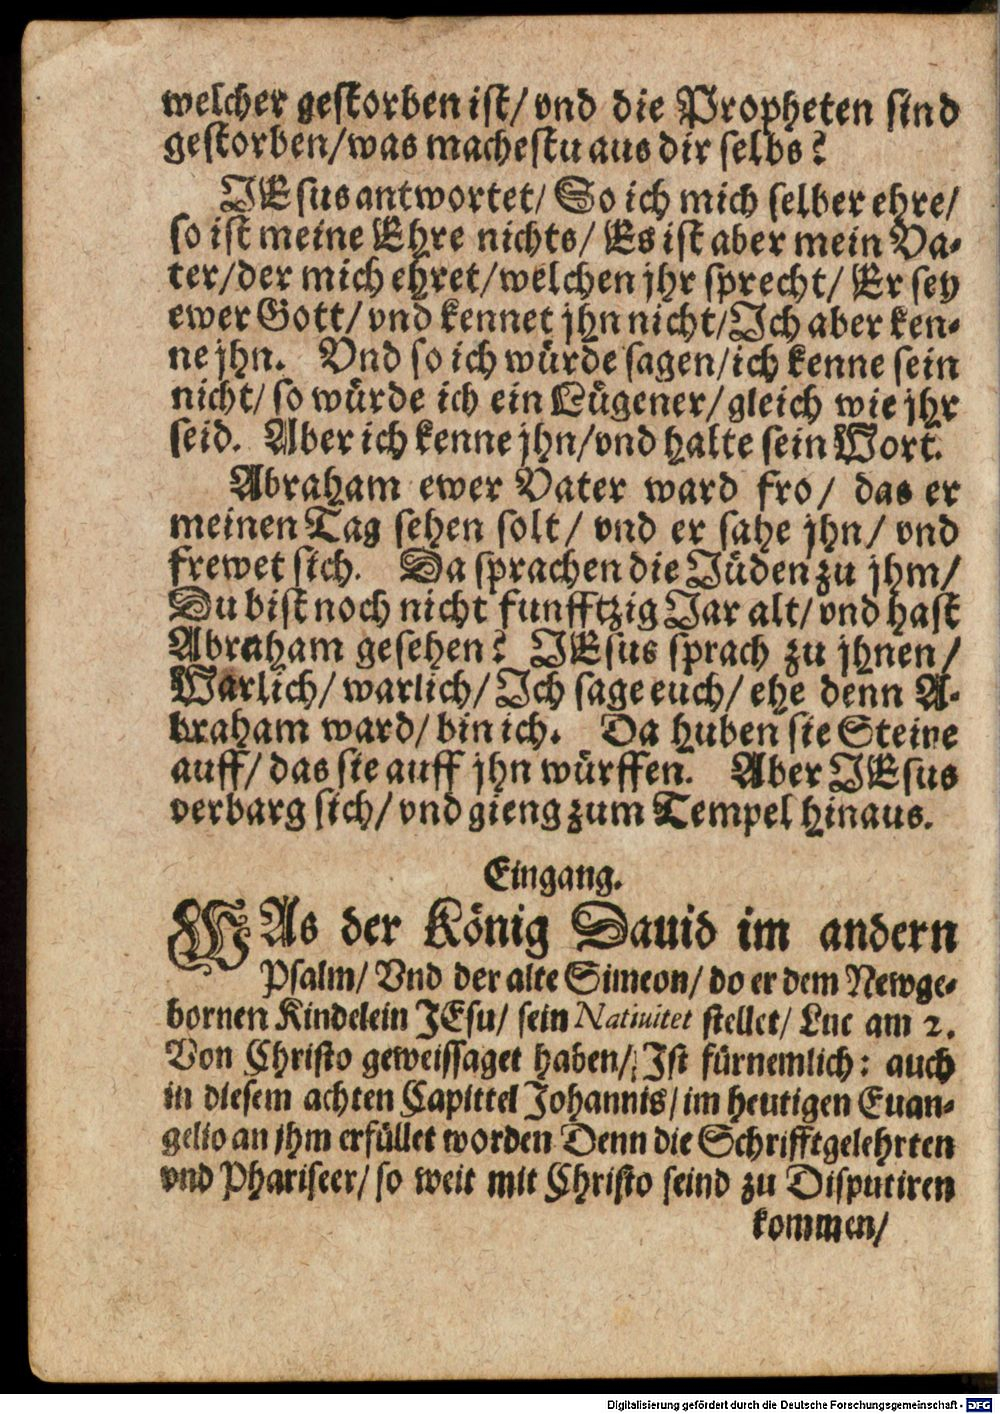 welcher gestorben ist/ vnd die Propheten sind
gestorben/ was machestu aus dir selbs?
JEsus antwortet/ So ich mich selber ehre/
so ist meine Ehre nichts/ Es ist aber mein Va-
ter/ der mich ehret/ welchen jhr sprecht/ Er sey
ewer Gott/ vnd kennet jhn nicht/ Ich aber ken-
ne jhn. Vnd so ich würde sagen/ ich kenne sein
nicht/ so würde ich ein Lügener/ gleich wie jhr
seid. Aber ich kenne jhn/ vnd halte sein Wort.
Abraham ewer Vater ward fro/ das er
meinen Tag sehen solt/ vnd er sahe jhn/ vnd
frewet sich. Da sprachen die Jüden zu jhm/
Du bist noch nicht funfftzig Jar alt/ vnd hast
Abraham gesehen? JEsus sprach zu jhnen/
Warlich/ warlich/ Ich sage euch/ ehe denn A-
braham ward/ bin ich. Da huben sie Steine
auff/ das sie auff jhn würffen. Aber JEsus
verbarg sich/ vnd gieng zum Tempel hinaus.
Eingang.
WAs der König Dauid im andern
Psalm/ Vnd der alte Simeon/ do er dem Newge-
bornen Kindelein JEsu/ sein Natiuitet stellet/ Luc am 2.
Von Christo geweissaget haben/ Ist fürnemlich: auch
in diesem achten Capittel Johannis/ im heutigen Euan-
gelio an jhm erfüllet worden Denn die Schrifftgelehrten
vnd Phariseer/ so weit mit Christo seind zu Disputiren
kommen/
Digitalisierung gefördert durch die Deutsche Forschungsgemeinschaft - DFG